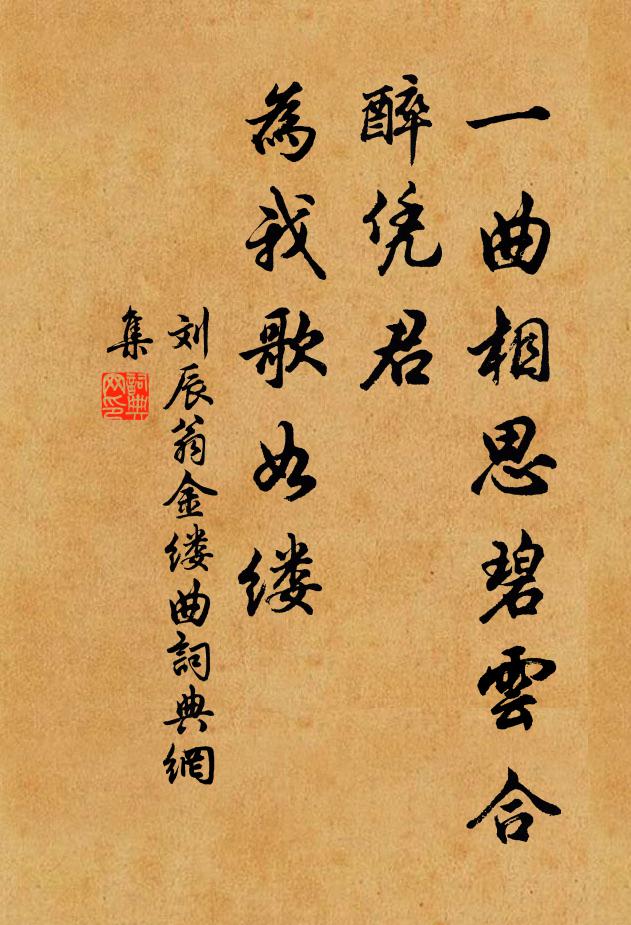 一曲相思碧雲合
醉凭君
為我歌如缕
刘辰翁金缕曲詞典網
集
詞典網印